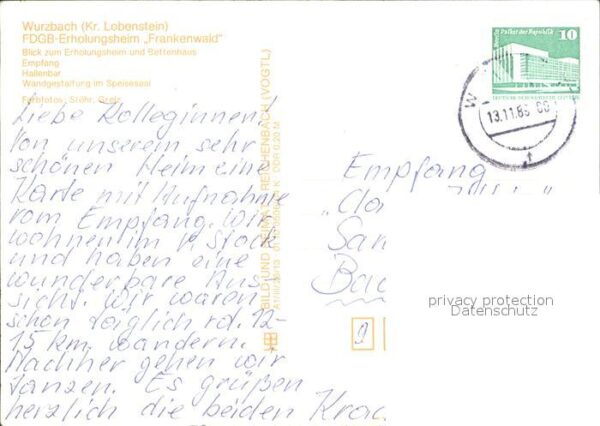 Wurzbach (Kr. Lobenstein)
FDGB-Erholungsheim „Frankenwald"
Blick zum Erholungsheim und Bettenhaus
Empfang
Hallenbar
Wandgestaltung im Speisesaal
Farbfotos: Stöhr,
Liebe Kolleginnen!
Von unserem sehr
schönen Heim eine
Karte mit Aufnahme
vom Empfang. Wir
wohnen im V. Stock
und haben eine
wunderbare Aus-
sicht. Wir waren
schon täglich rd. 12-
15 km wandern.
Nachher gehen wir
tanzen. Es grüßen
herzlich die beiden
BILD UND HEIMAT REICHENBACH (VOGTL)
K DDR 0,20 M
Palast der Republik
10
13.11.86
Empfang
San
Ba
privacy protection
Datenschutz